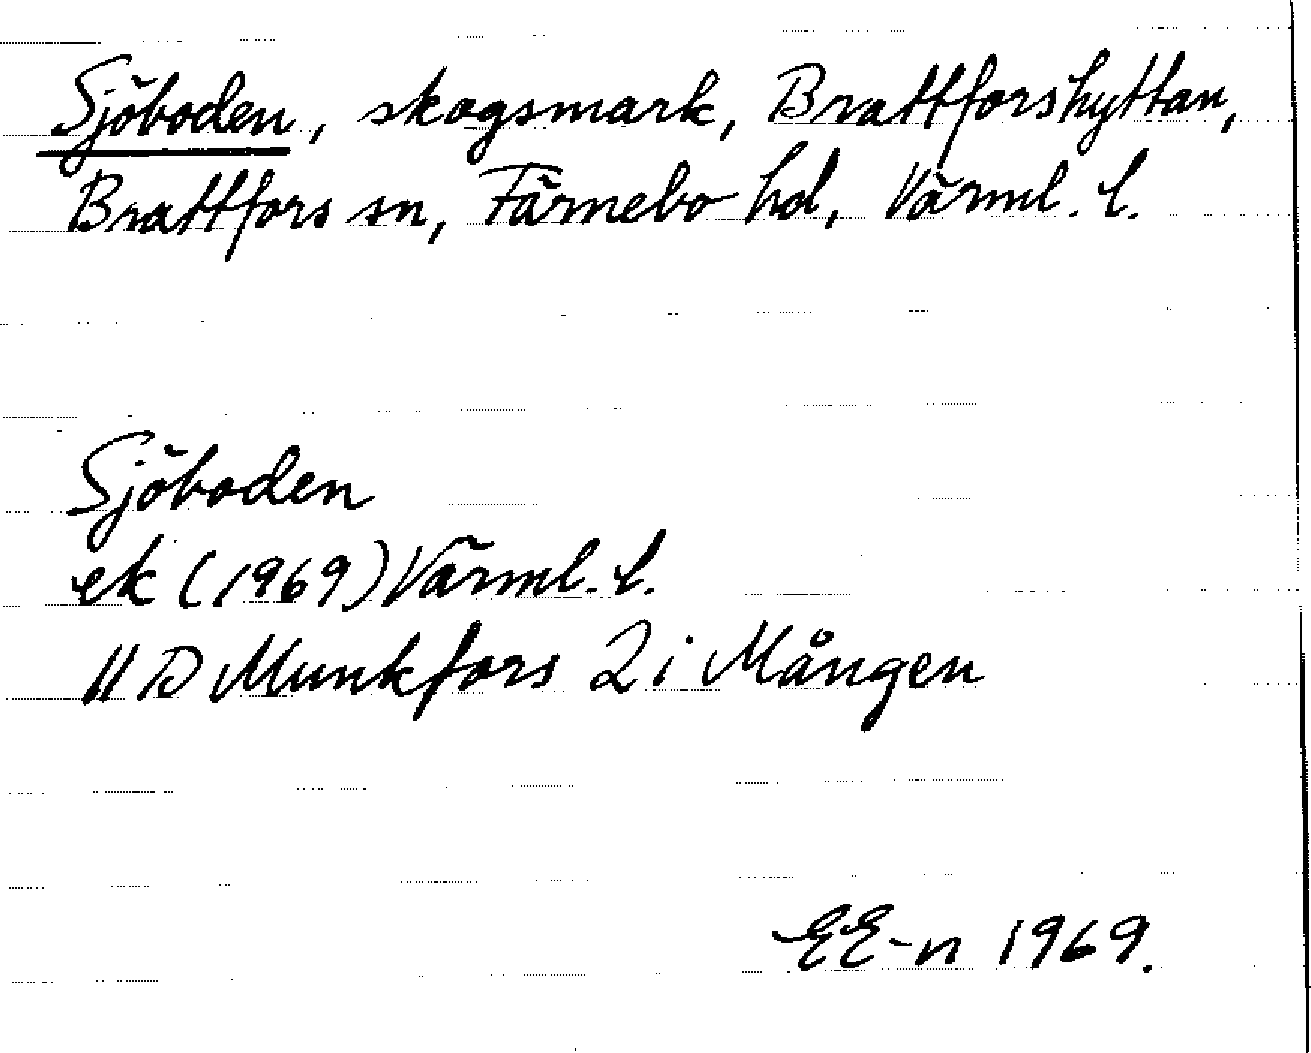 Sjöboden, skogsmark, Brattforshyttan,
Brattfors sn, Färnebo hd, Värml. l.
Sjöboden
ek (1969) Värml. l.
11 D Munkfors 2 i Mången
EE-n 1969.